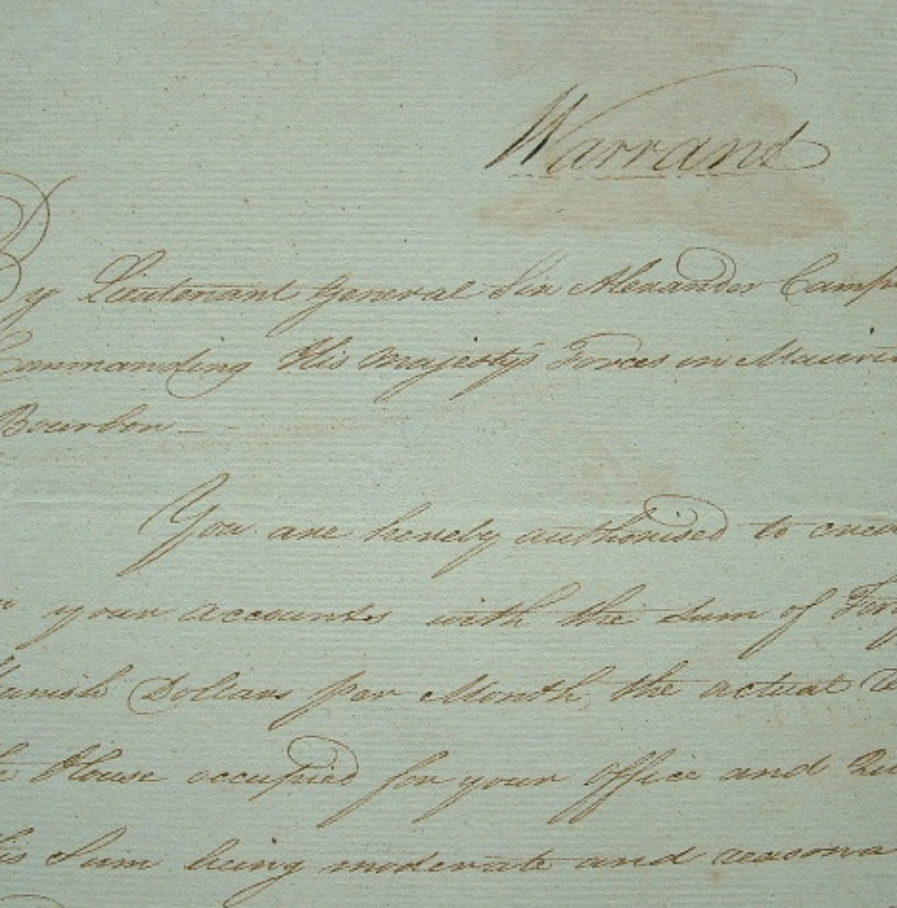 Warrant
By Lieutenant General Sir Alexander Camp
Commanding His Majesty's Forces in Mauri
Bourbon —
You are hereby authorised to
your accounts with the Sum of
Dollars per Month, the actual
House occupied for your Office and
Sum being moderate and reasona